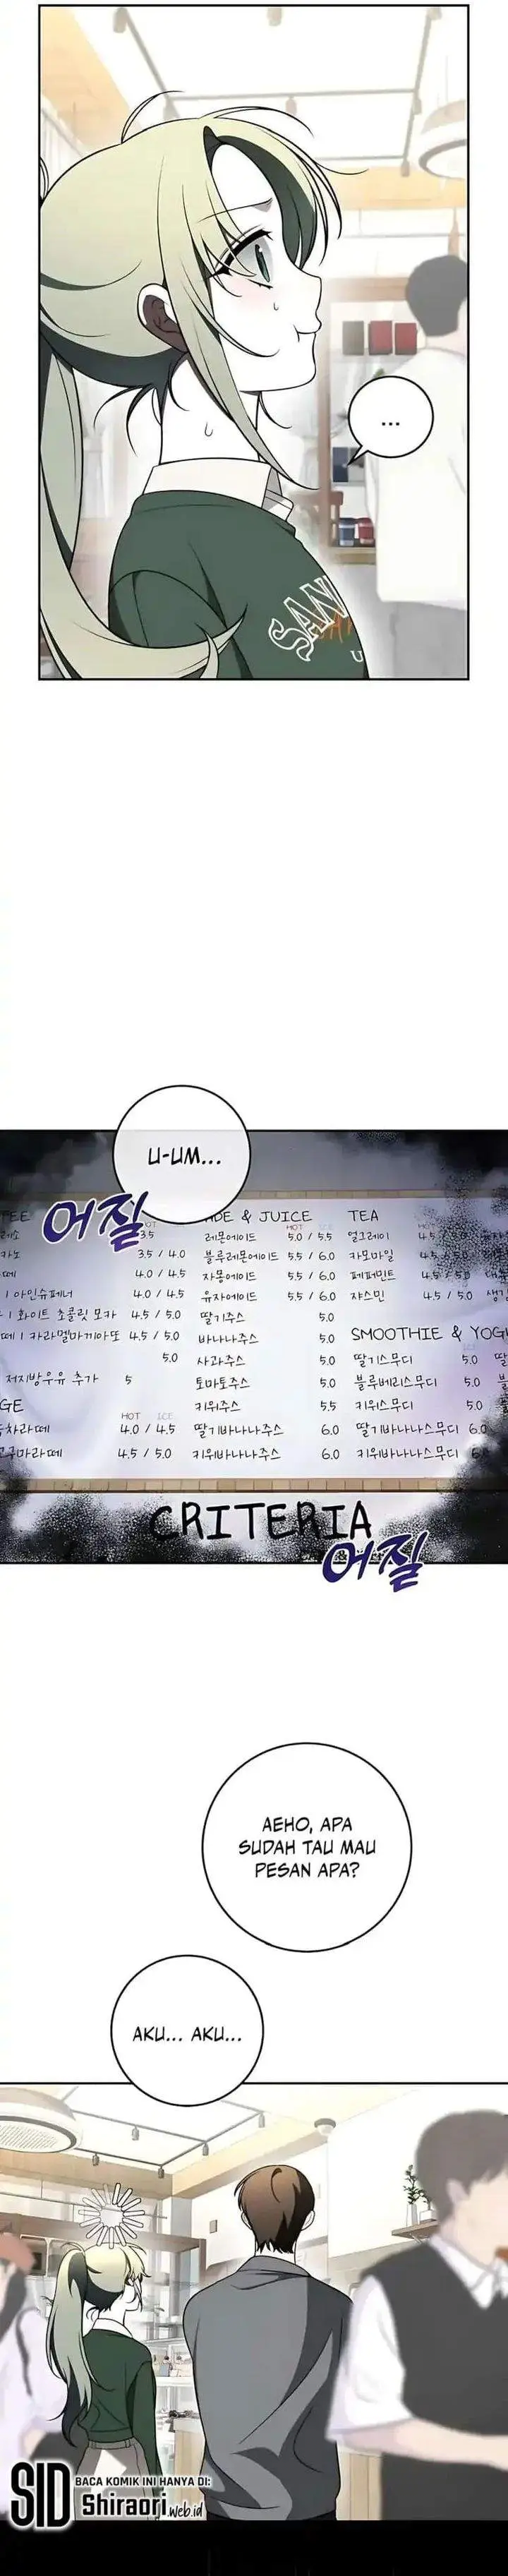 ...
SAN
U
U-UM...
어질
ADE & JUICE
TEA
HOT
3.5
레몬에이드 5.0 / 5.5
얼그레이
3.5 / 4.0
블루레몬에이드 5.5 / 6.0
카모마일
4.0 / 4.5
자몽에이드 5.5 / 6.0
페퍼민트
| 아인슈페너 4.0 / 4.5
유자에이드 5.5 / 6.0
쟈스민 4.5 / 5.0
| 화이트 초콜릿 모카 4.5 / 5.0
딸기주스 5.0
| 카라멜마끼아또 4.5 / 5.0
바나나주스 5.0
SMOOTHIE & YOGU
5.0
사과주스 5.0
딸기스무디 5.0
저지방우유 추가 5
토마토주스 5.0
블루베리스무디 5.0
키위주스 5.5
키위스무디 5.0
HOT ICE
4.0 / 4.5
딸기바나나주스 6.0
딸기바나나스무디 6.0
4.5 / 5.0
키위바나나주스 6.0
키위바나나스무디 6
CRITERIA
어질
AEHO, APA
SUDAH TAU MAU
PESAN APA?
AKU... AKU...
SID
BACA KOMIK INI HANYA DI:
Shiraori.web.id